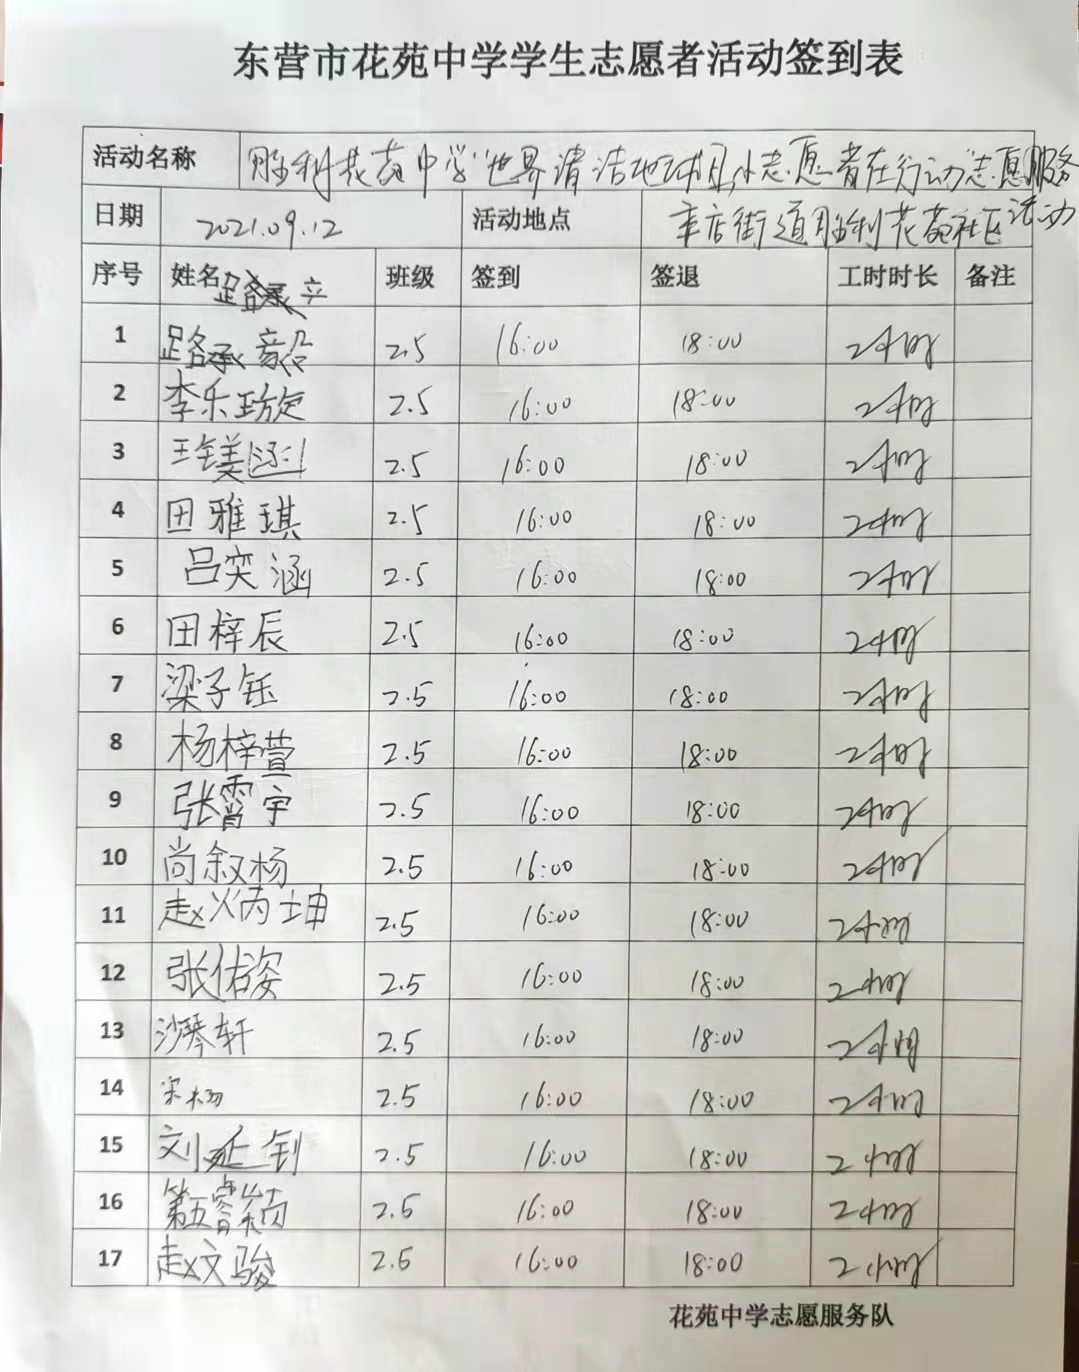 东营市花苑中学学生志愿者活动签到表
活动名称 胜利花苑中学"世界清洁地球日,小志愿者在行动"志愿服务活动
日期 2021.09.12 活动地点 辛店街道胜利花苑社区
序号 姓名 班级 签到 签退 工时时长 备注
1 路承 2.5 16:00 18:00 2小时
2 李乐璇 2.5 16:00 18:00 2小时
3 王铭美涵 2.5 16:00 18:00 2小时
4 田雅琪 2.5 16:00 18:00 2小时
5 吕奕涵 2.5 16:00 18:00 2小时
6 田梓辰 2.5 16:00 18:00 2小时
7 梁子钰 2.5 16:00 18:00 2小时
8 杨梓萱 2.5 16:00 18:00 2小时
9 张霄宇 2.5 16:00 18:00 2小时
10 尚叙杨 2.5 16:00 18:00 2小时
11 赵炳坤 2.5 16:00 18:00 2小时
12 张佑姿 2.5 16:00 18:00 2小时
13 沙琴轩 2.5 16:00 18:00 2小时
14 宋杨 2.5 16:00 18:00 2小时
15 刘延钊 2.5 16:00 18:00 2小时
16 第五睿 2.5 16:00 18:00 2小时
17 赵文骏 2.5 16:00 18:00 2小时
花苑中学志愿服务队